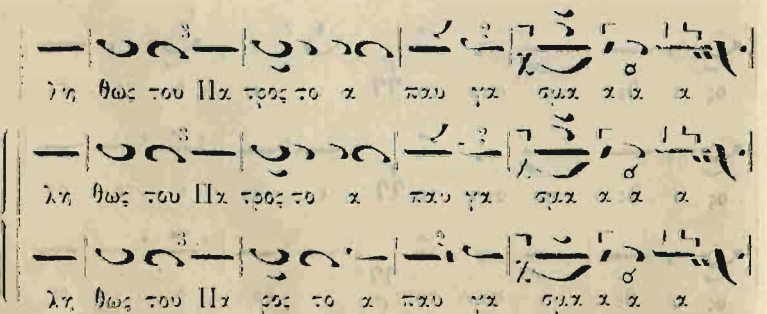 λη θως του Πα τρος το α παυ γα σμα α α α
λη θως του Πα τρος το α παυ γα σμα α α α
λη θως του Πα ρος το α παυ γα σμα α α α